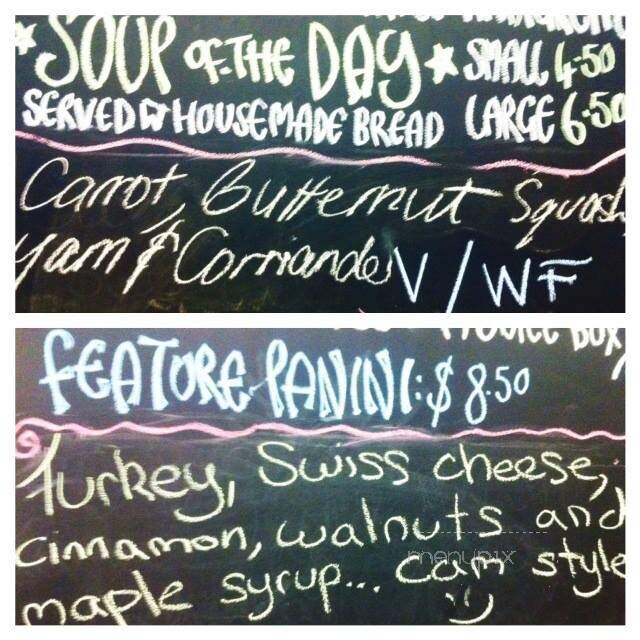 SOUP OF THE DAY SMALL 4.50
SERVED W HOUSEMADE BREAD LARGE 6.50
Carrot, Butternut Squash
Yam & Corriander V/WF
FEATURE PANINI: $8.50
Turkey, Swiss cheese,
cinnamon, walnuts and
menupix
maple syrup... cam style